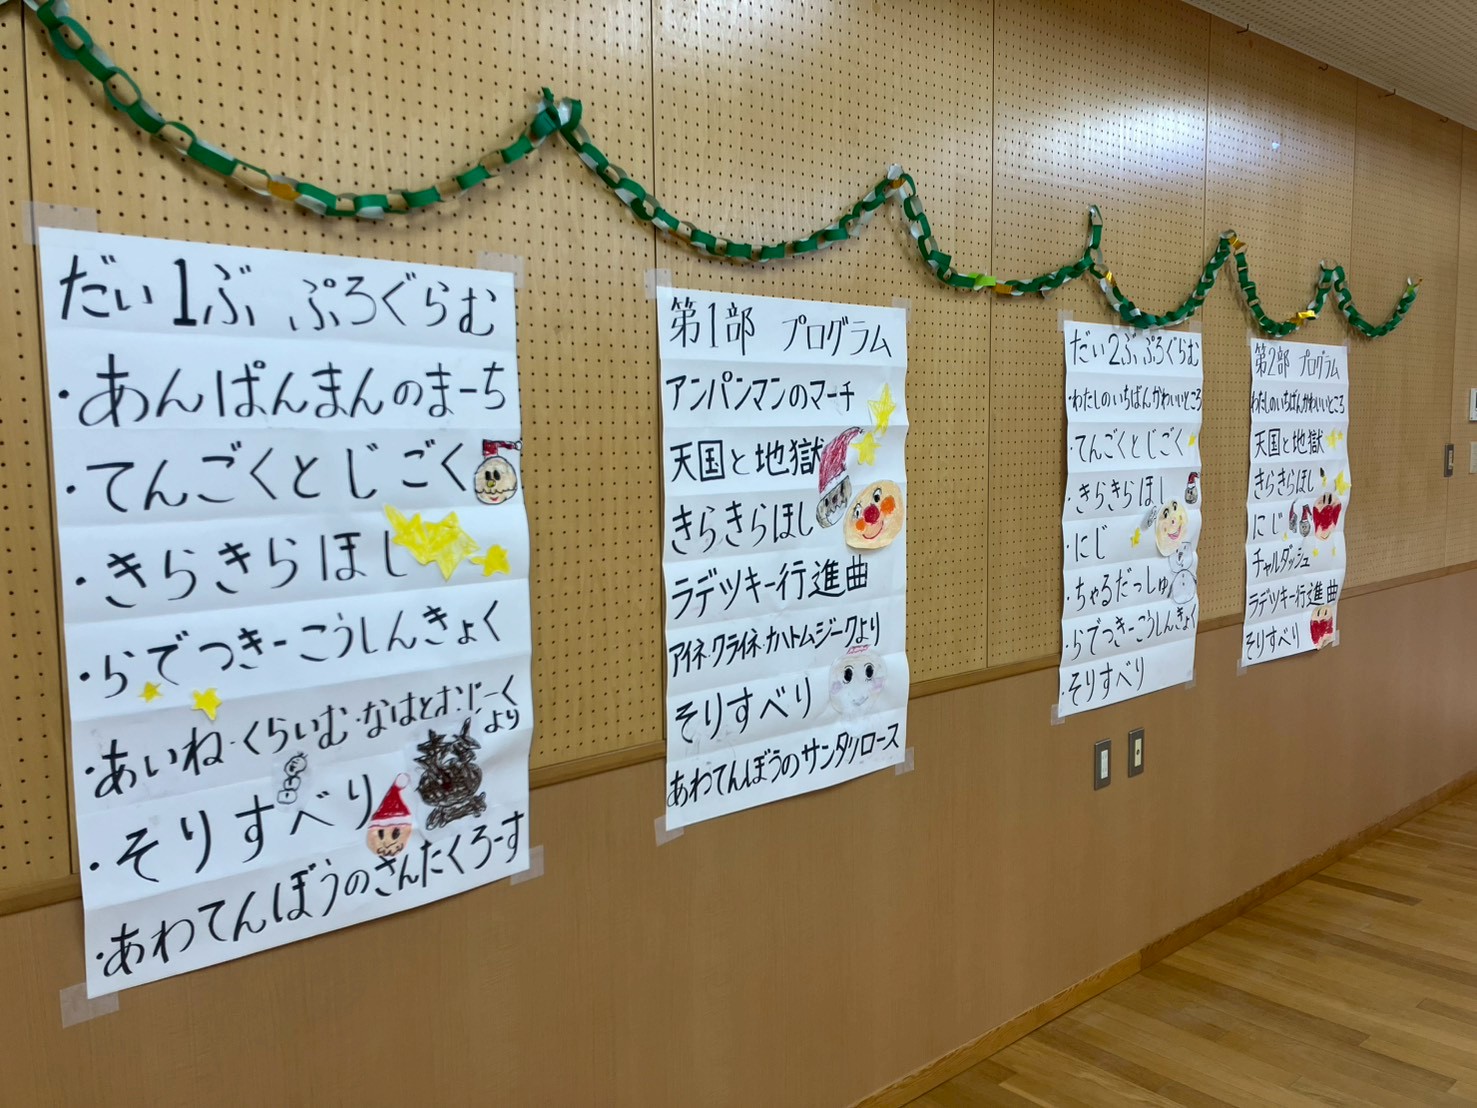 だい1ぶ ぷろぐらむ
・あんぱんまんのまーち
・てんごくとじごく
・きらきらほし
・らでつきーこうしんきょく
・あいね・くらいむ・なはとむじーくより
・そりすべり
・あわてんぼうのさんたくろーす
第1部 プログラム
アンパンマンのマーチ
天国と地獄
きらきらほし
ラデツキー行進曲
アイネ・クライネ・ナハトムジークより
そりすべり
あわてんぼうのサンタクロース
だい2ぶ ぷろぐらむ
・わたしのいちばんかわいいところ
・てんごくとじごく
・きらきらほし
・にじ
・ちゃるだっしゅ
・らでつきーこうしんきょく
・そりすべり
第2部 プログラム
わたしのいちばんかわいいところ
天国と地獄
きらきらほし
にじ
チャルダッシュ
ラデツキー行進曲
そりすべり